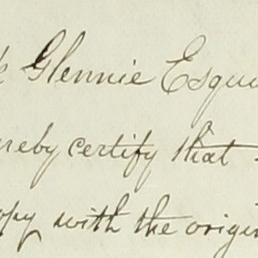 k Glennie Esqu
ereby certify that
opy with the origin